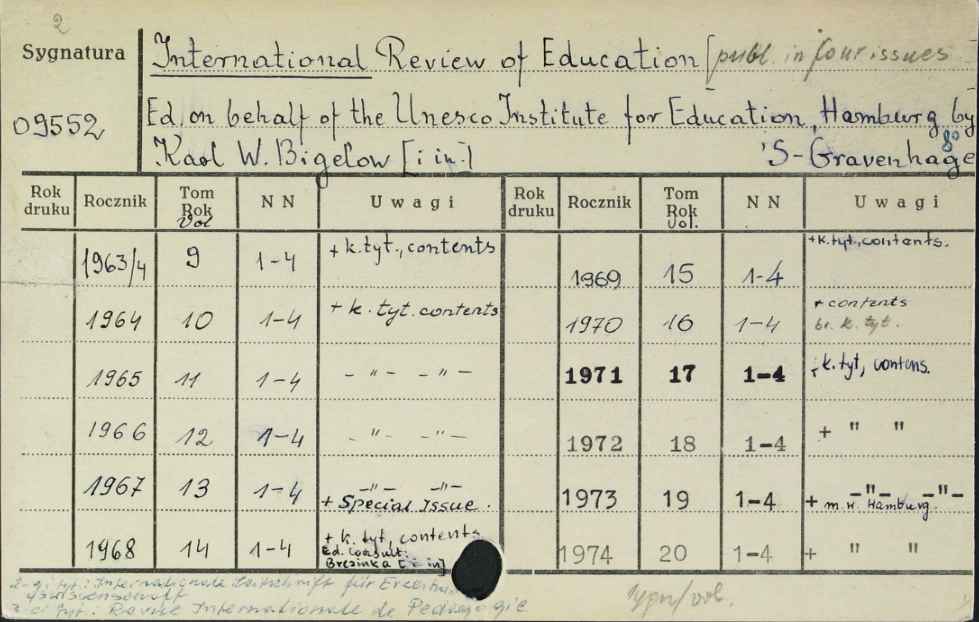 2
Sygnatura
International Review of Education [publ. in four issues
09552
Ed. on behalf of the Unesco Institute for Education, Hamburg by
Karl W. Bigelow [i in.] 'S-Gravenhage
8°
Rok druku Rocznik Tom Rok Vol N N Uwagi Rok druku Rocznik Tom Rok Vol. N N Uwagi
1963/4 9 1-4 + k. tyt., contents 1969 15 1-4 + k. tyt., contents.
1964 10 1-4 + k. tyt. contents 1970 16 1-4 + contents br. k. tyt.
1965 11 1-4 - " - - " - 1971 17 1-4 + k. tyt, contens.
1966 12 1-4 - " - - " - 1972 18 1-4 + " "
1967 13 1-4 - " - - " - + Special Issue. 1973 19 1-4 + - " - - " - m. w. Hamburg.
1968 14 1-4 + k. tyt, contents Ed. consult: Brezinka [i in] 1974 20 1-4 + " "
2-gi tyt.: Internationale Zeitschrift für
tyt.: Revue Internationale de Pedagogie
1ygn/vol.